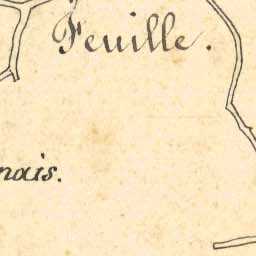 Feuille.
nais.